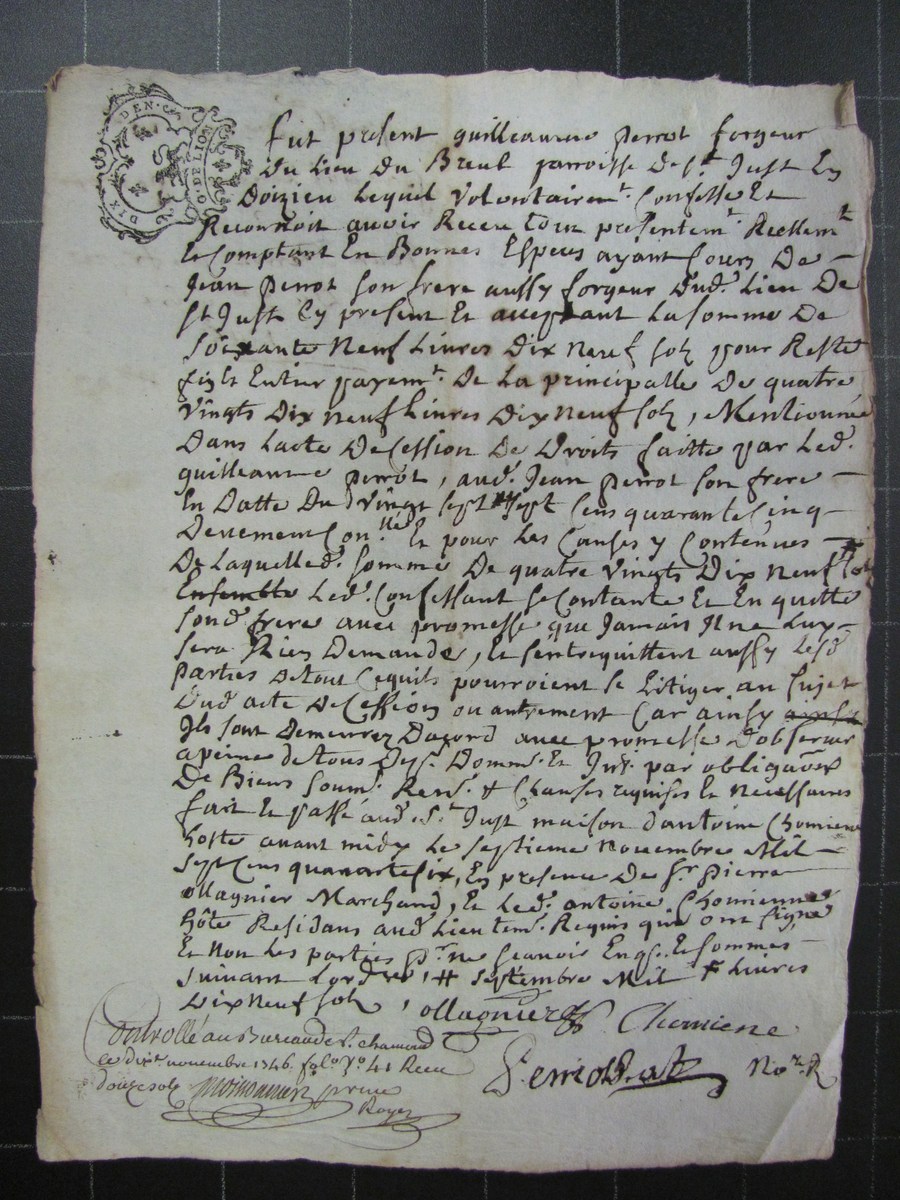 DIX DEN. G. O. DE LION
fut present guilleaume perrot forgeur
Du Lieu Du Breul parroisse De st Just En
Doizieu Lequel Volontairemt. Confesse Et
Reconnoit avoir Receu tout presentemt. Reellemt
Et Comptant En Bonnes Especes ayant Cours De
Jean perrot son frere aussy forgeur Dud. Lieu De
st Just Cy present Et acceptant La somme De
Soixante Neuf Livres Dix neuf sols pour Reste
Et Entier payemt. De La principalle De quatre
Vingts Dix Neuf Livres Dix Neuf sols, Mentionnée
Dans Lacte De Cession De Droits faitte par Led.
guilleaume perrot, aud. Jean perrot son frere
En Datte Du Vingt sept sept Cens quarante Cinq
Deuement Con.llé Et pour Les Causes y Contenues
De Laquelled. somme De quatre Vingts Dix Neuf #
Ensemble Led. Confessant se Contante Et En quitte
sond. frere avec promesse que Jamais Il ne Luy
sera Rien Demande, Et sentrequittent aussy Lesd.
parties De tout Cequils pourroient se Litiger au sujet
Dud. acte De Cession ou autrement Car ainsy ainsy
Ils sont Demeurez Dacord avec promesse Dobserver
a peine De tous Dep. Domm. Et Int. par obligaon
De Biens soum. Ren. & Clauses requises Et necessaires
fait Et passé aud. st. Just maison dantoine Chomienne
hoste avant midy Le septieme novembre Mil
sept Cens quarante six, En presence De sr. pierre
ollagnier Marchand, Et Led. antoine Chomienne
hôte Residans aud. Lieu tem. Requis qui ont signé
Et Non Les parties pr. ne scavoir Enq. Et sommes
suivant Lordre, # septembre Mil # Livres
Dix Neuf sols, ollagnier Chomiene
Controllé au Bureau de st. chamond
ce dixe. novembre 1746 folo. 70 41 Receu
douze sols
Royer
Nore. R